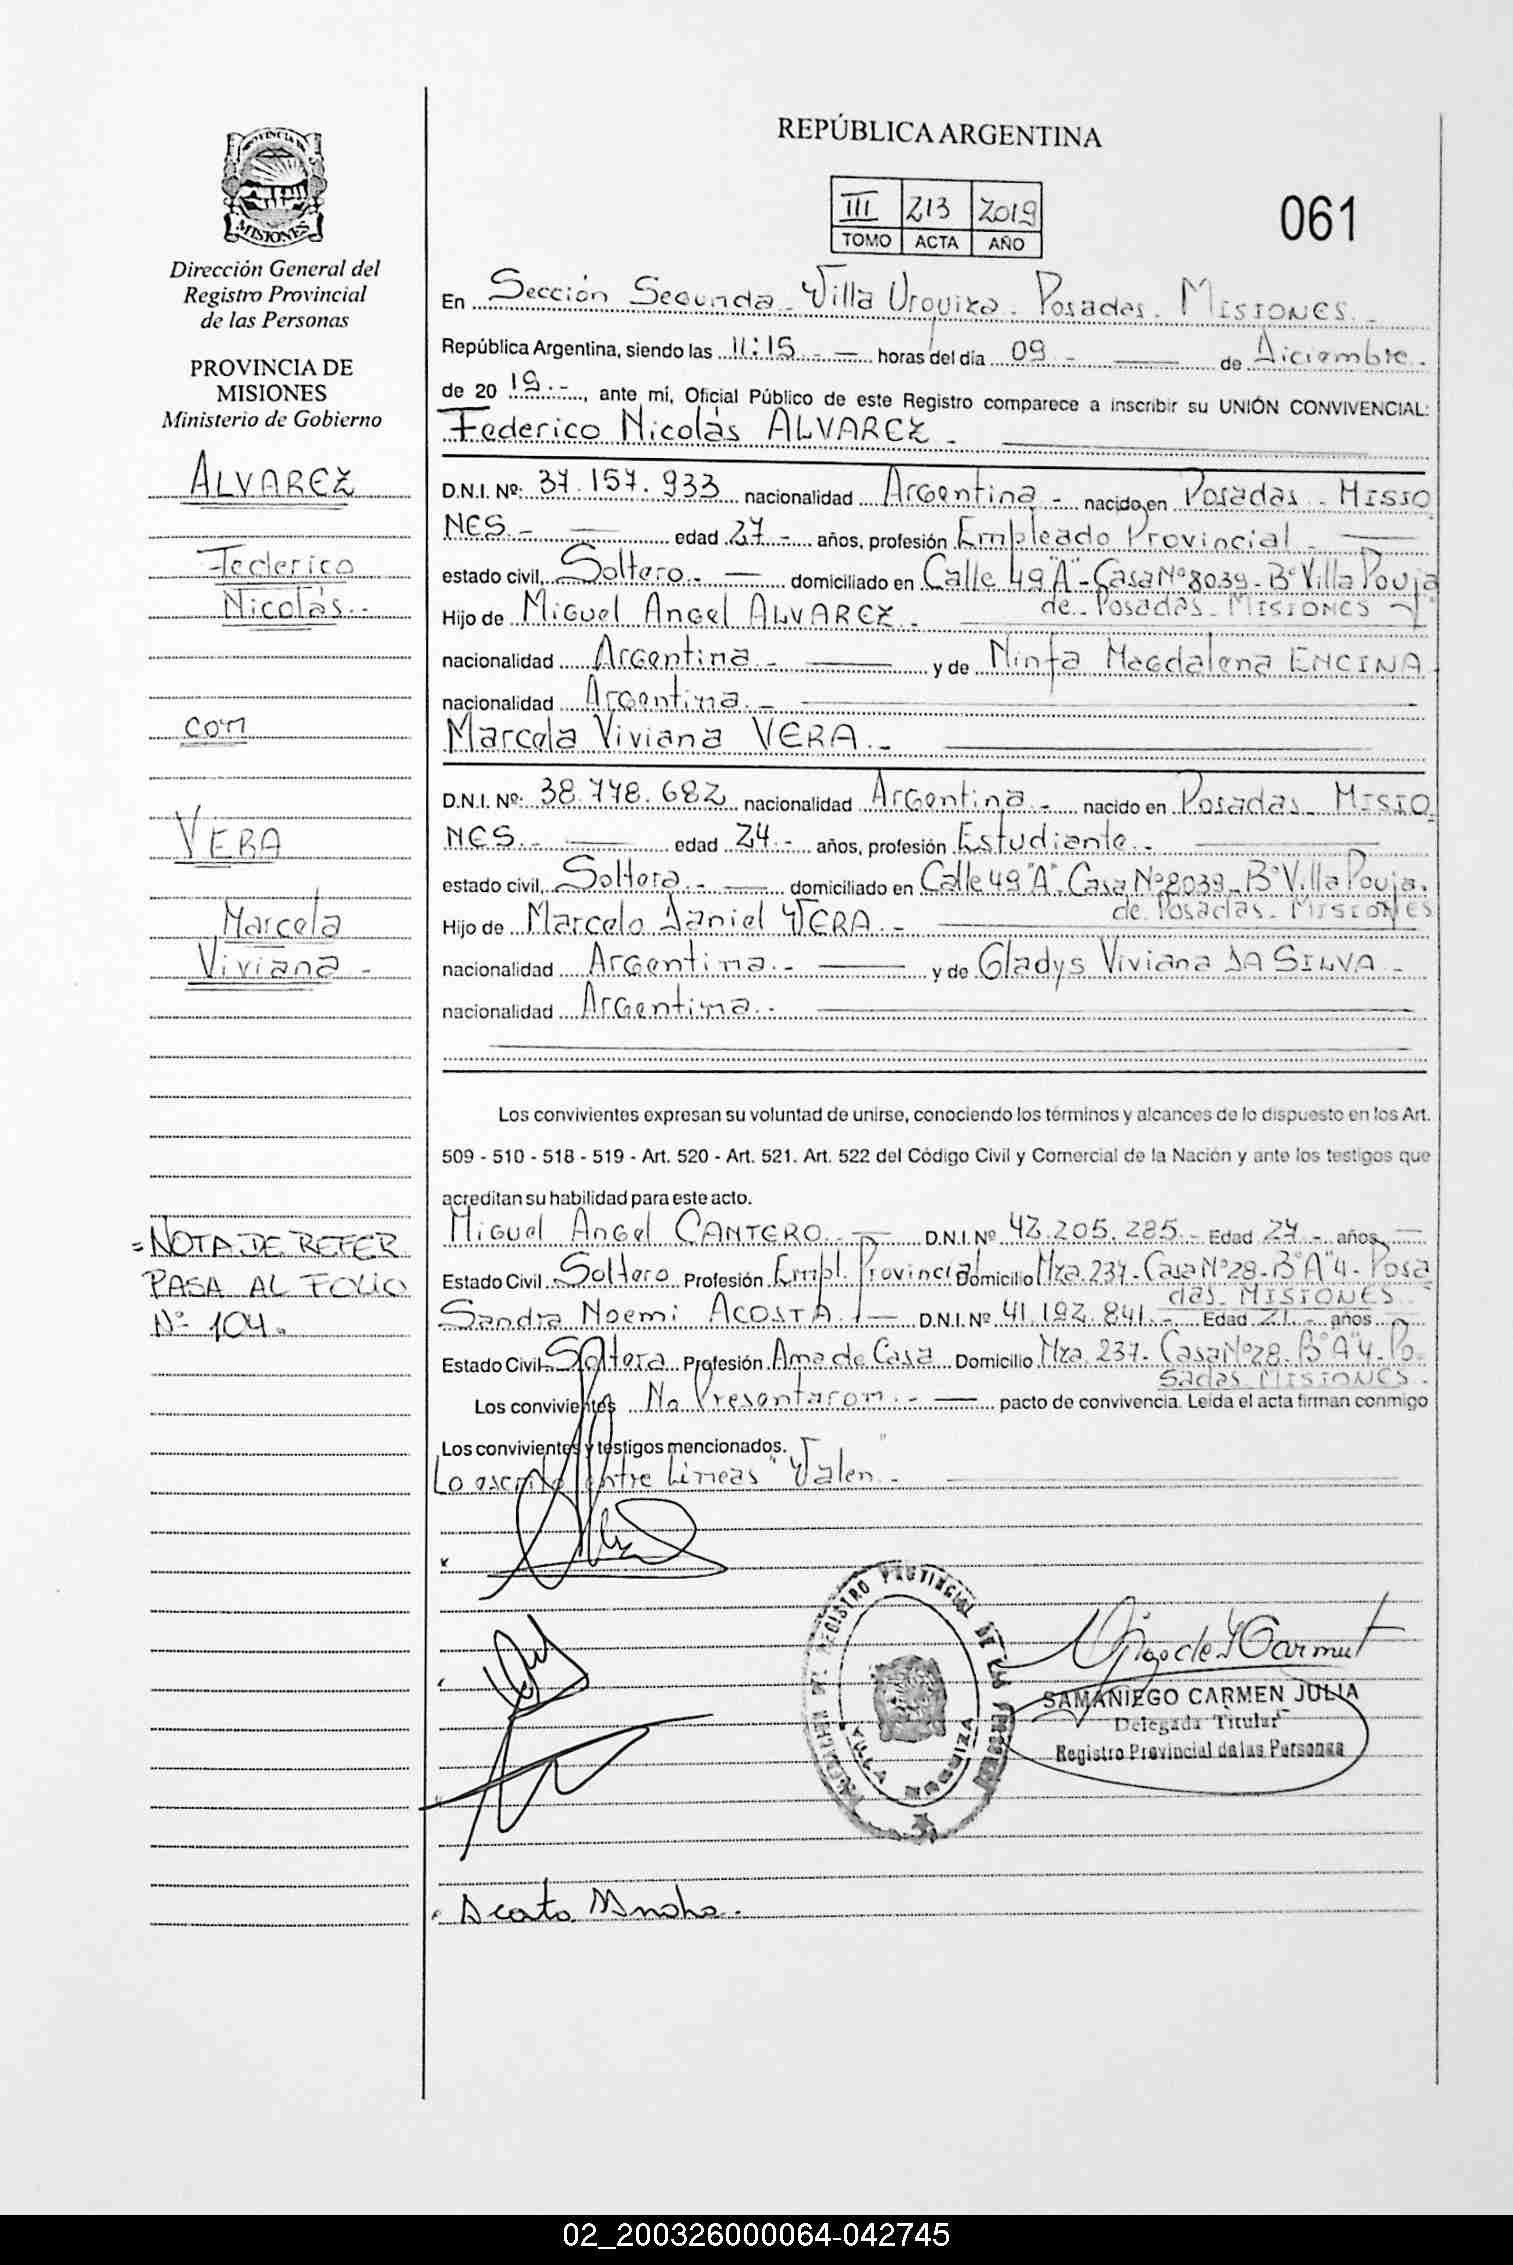 REPÚBLICA ARGENTINA
III 213 2019
TOMO ACTA AÑO
061
PROVINCIA DE
MISIONES
Dirección General del
Registro Provincial
de las Personas
PROVINCIA DE
MISIONES
Ministerio de Gobierno
ALVAREZ
Federico
Nicolás.-
con
VERA
Marcela
Viviana -
=NOTA DE REFER
PASA AL FOLIO
Nº 104.
En Sección Segunda - Villa Urquiza - Posadas - MISIONES.-
República Argentina, siendo las 11:15.- — horas del día 09 - — de Diciembre.
de 20 19.-, ante mí, Oficial Público de este Registro comparece a inscribir su UNIÓN CONVIVENCIAL:
Federico Nicolás ALVAREZ.-
D.N.I. Nº: 37.157.933 nacionalidad Argentina.- nacido en Posadas - MISIO
NES.- — edad 27.- años, profesión Empleado Provincial.-
estado civil, Soltero.- — domiciliado en Calle 49 "A"- Casa Nº 8039 - Bº Villa Pouja
de Posadas - MISIONES -
Hijo de Miguel Angel ALVAREZ.-
nacionalidad Argentina.- — y de Ninfa Magdalena ENCINA
nacionalidad Argentina.-
Marcela Viviana VERA.-
D.N.I. Nº: 38.778.682 nacionalidad Argentina.- nacido en Posadas - MISIO
NES.- — edad 24.- años, profesión Estudiante.-
estado civil, Soltera.- — domiciliado en Calle 49 "A". Casa Nº 8039 - Bº Villa Pouja.
de Posadas - MISIONES
Hijo de Marcelo Daniel VERA.-
nacionalidad Argentina.- — y de Gladys Viviana DA SILVA -
nacionalidad Argentina.-
Los convivientes expresan su voluntad de unirse, conociendo los términos y alcances de lo dispuesto en los Art.
509 - 510 - 518 - 519 - Art. 520 - Art. 521. Art. 522 del Código Civil y Comercial de la Nación y ante los testigos que
acreditan su habilidad para este acto.
Miguel Angel CANTERO.- — D.N.I. Nº 42.205.285.- Edad 24.- años, —
Estado Civil Soltero Profesión Empl. Provincial Domicilio Mza. 237- Casa Nº 28- Bº "A"4- Posa
das. MISIONES.-
Sandra Noemi ACOSTA.- — D.N.I. Nº 41.192.841.- Edad 21.- años
Estado Civil Soltera Profesión Ama de Casa Domicilio Mza. 237- Casa Nº 28. Bº "A"4. Po
sadas MISIONES.
Los convivientes No Presentaron.- — pacto de convivencia. Leída el acta firman conmigo
Los convivientes y testigos mencionados.
Lo escrito entre Líneas "Valen".-
REGISTRO PROVINCIAL DE LAS
VILLA URQUIZA
SAMANIEGO CARMEN JULIA
Delegada Titular
Registro Provincial de las Personas
Acosta
02_200326000064-042745